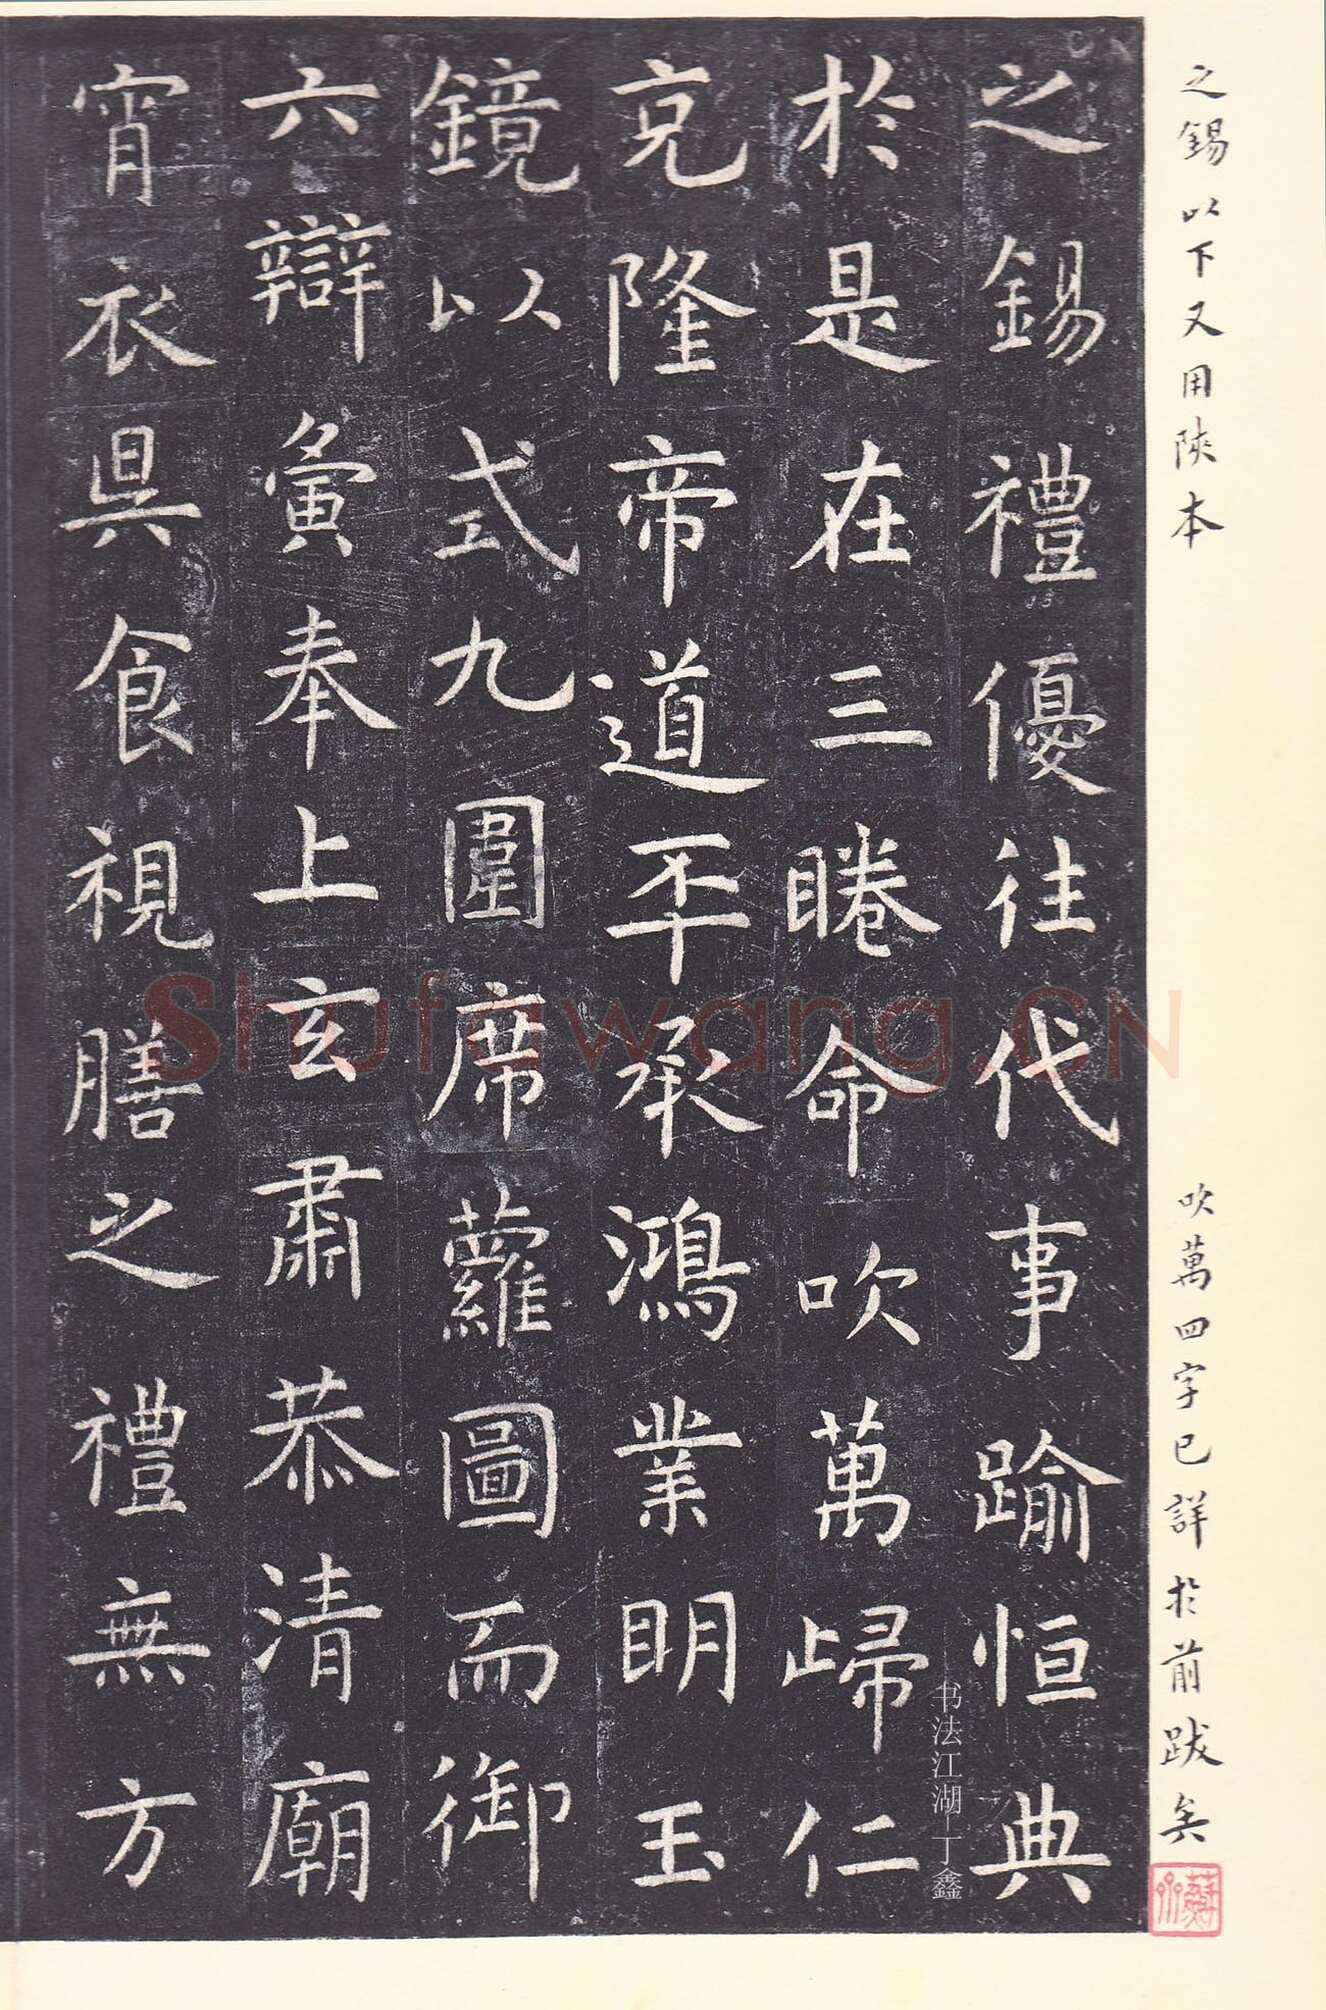 之錫以下又用陝本
吹萬四字已詳於前跋矣
之錫禮優往代事踰恒典
於是在三睠命吹萬歸仁
克隆帝道丕承鴻業明玉
鏡以式九圍席蘿圖而御
六辯寅奉上玄肅恭清廟
宵衣昃食視膳之禮無方
shufawang.CN
书法江湖-丁鑫